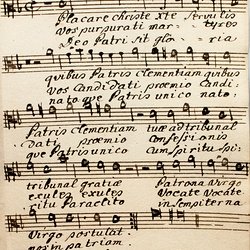 Placare Christe Xte Servulis
Vos purpurati mar- tyres
Deo Patri sit glo- ria
quibus Patris clementiam quibus
Vos Candidati prœmio Candi
nato que Patris unico nato
Patris clementiam tuæ ad tribunal
dati prœmio Confessionis
que Patris unico cum spiritu spi
tribunal gratiæ Patrona Virgo
exules exules Vocate Vocate
ritu Paraclito in sempiterna
Virgo postulat
nos in patriam